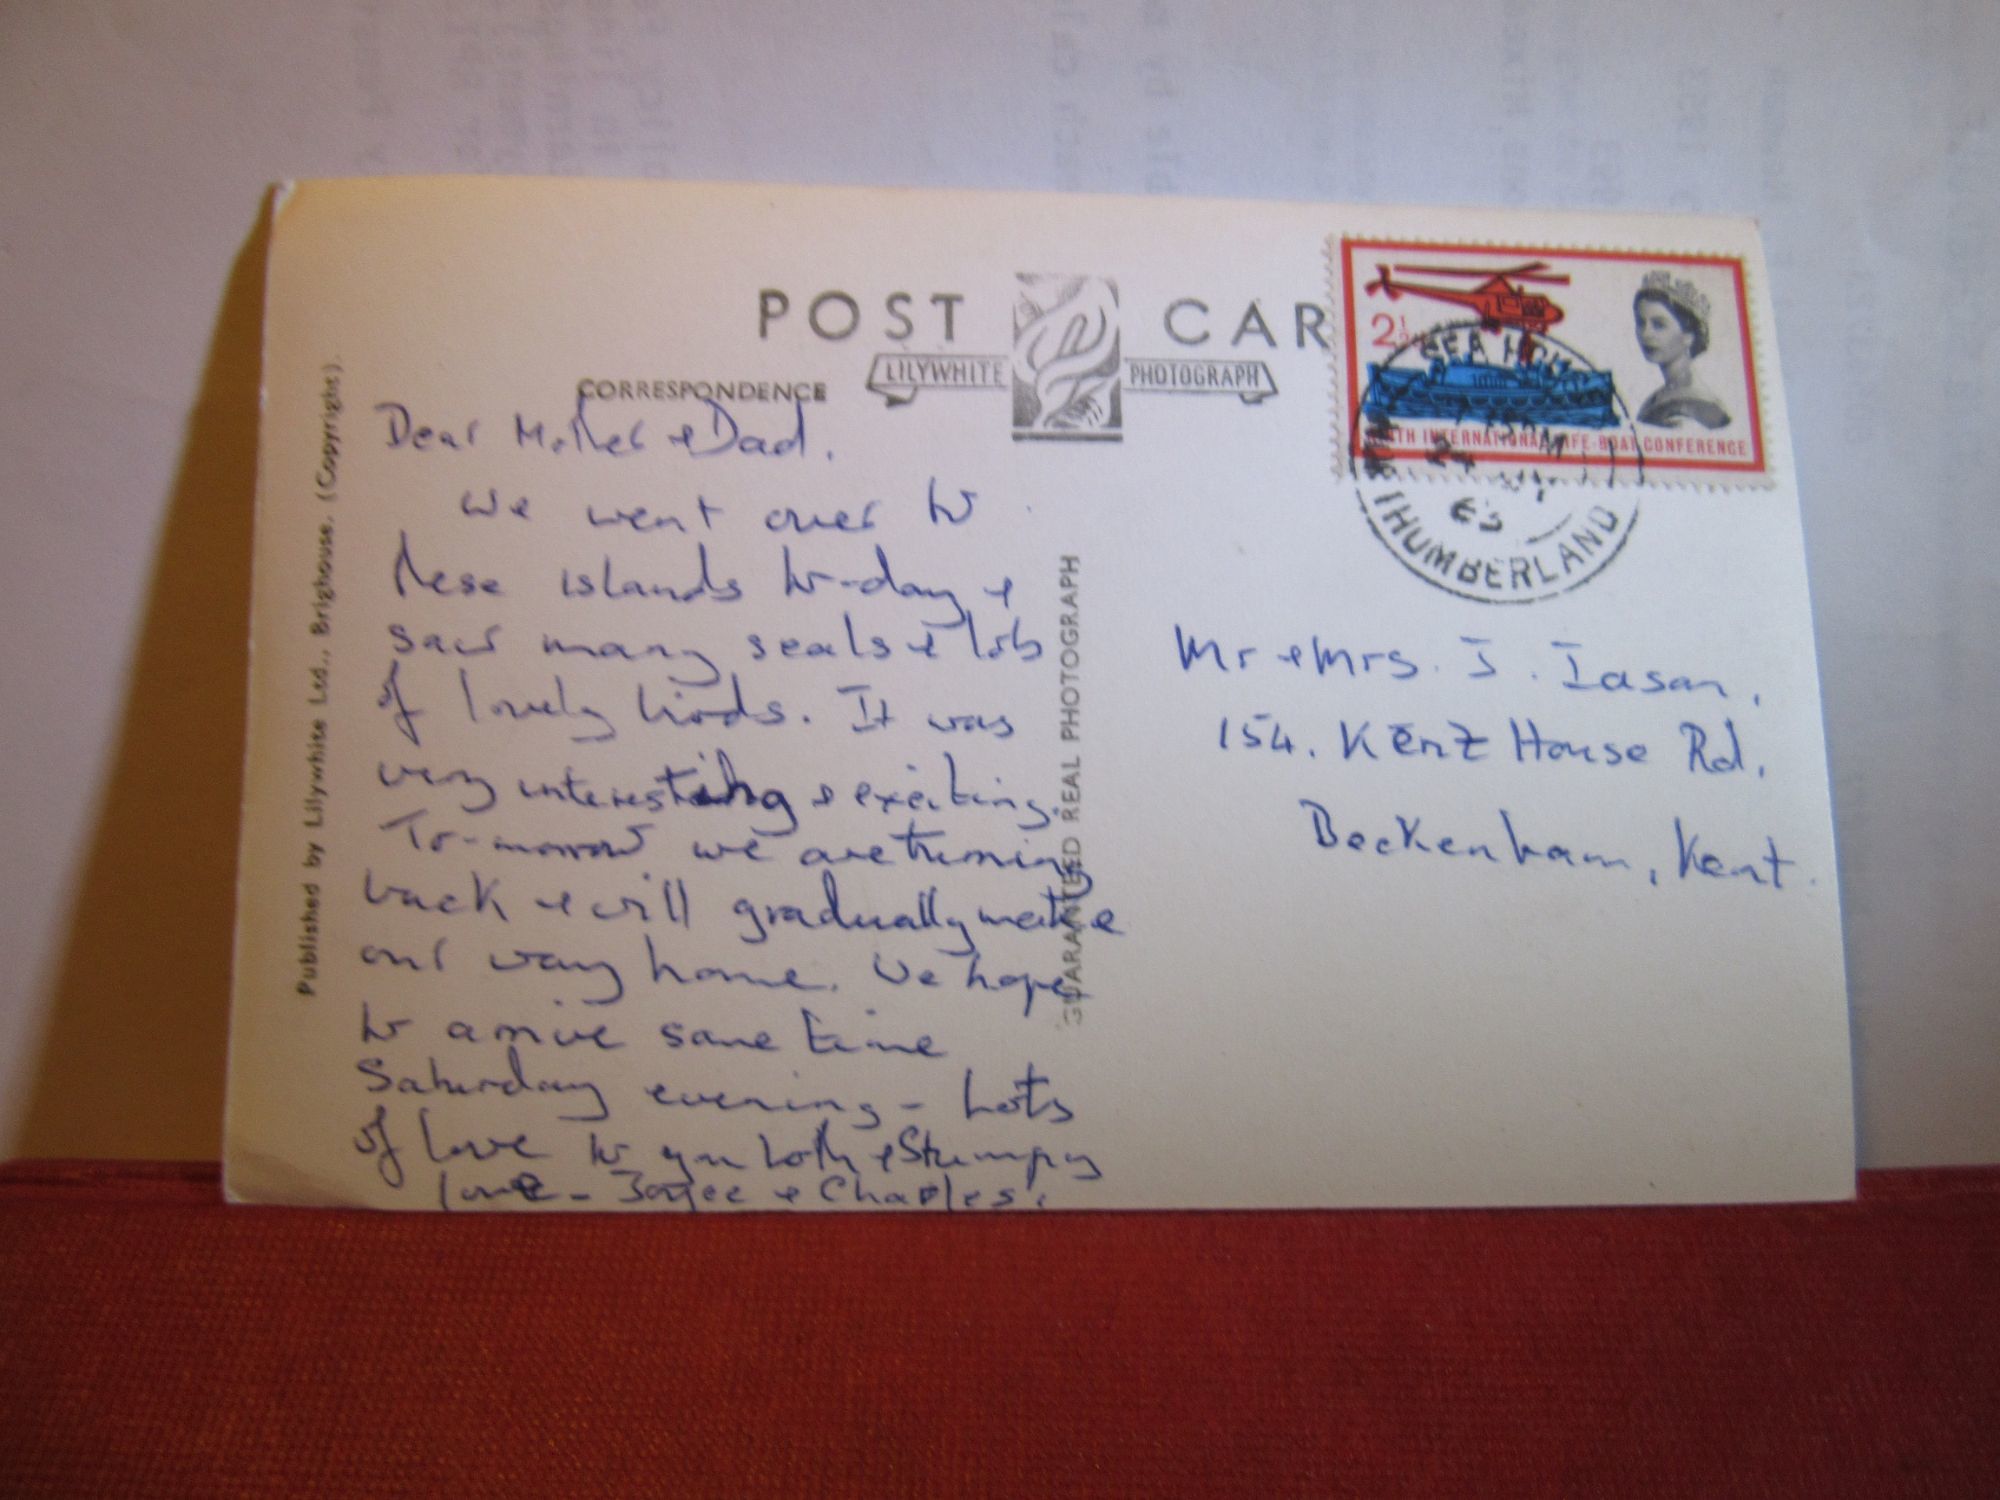 POST CAR
LILYWHITE PHOTOGRAPH
CORRESPONDENCE
Dear Mother & Dad,
We went over to
these islands to-day &
saw many seals & lots
of lovely birds. It was
very interesting & exciting.
To-morrow we are turning
back & will gradually make
our way home. We hope
to arrive some time
Saturday evening - Lots
of love to you both & Stumpy
love - Joyce & Charles.
Published by Lilywhite Ltd., Brighouse. (Copyright).
GUARANTEED REAL PHOTOGRAPH
2½
INTERNATIONAL LIFE-BOAT CONFERENCE
SEA
24
63
THUMBERLAND
Mr & Mrs. I. Iasan,
154. Kent House Rd,
Beckenham, Kent.